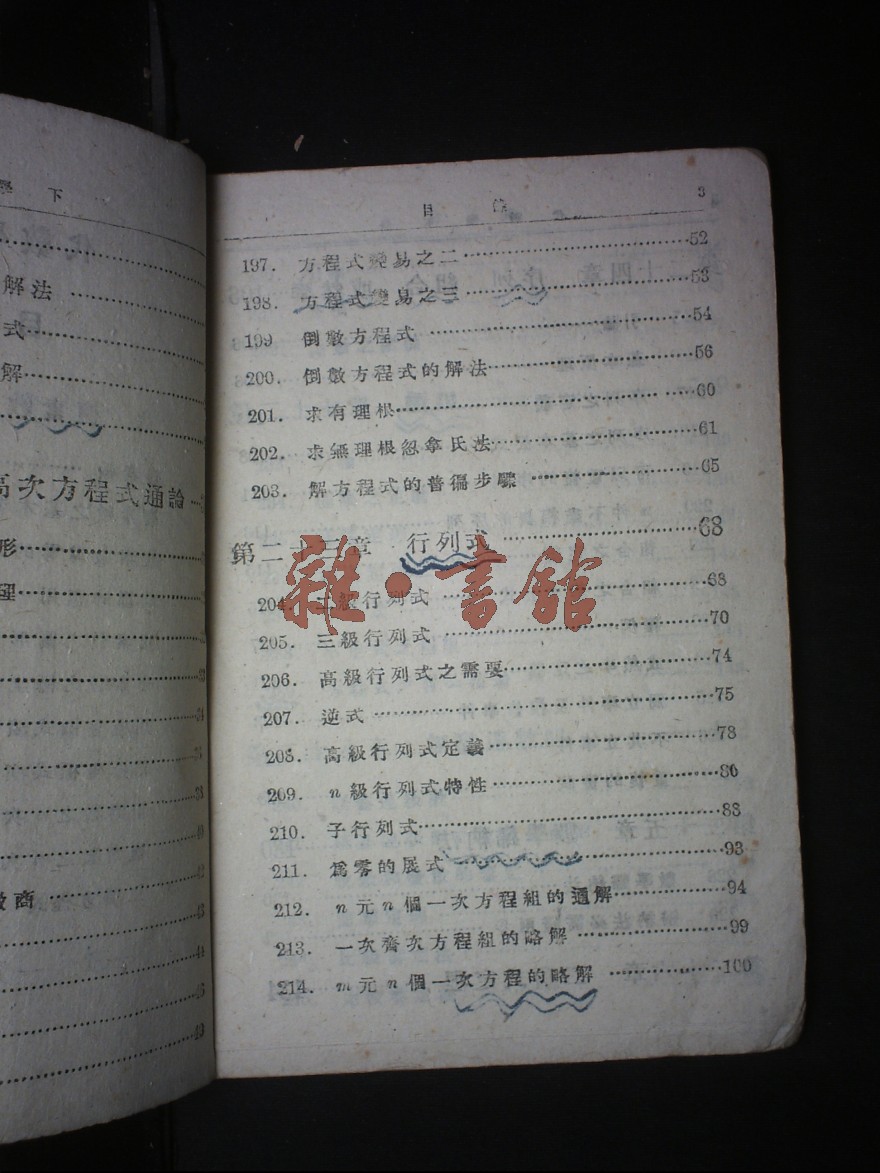 學 下
解法
式
解
高次方程式通論
形
理
33
34
38
40
42
數商
43
44
46
目 錄 3
197. 方程式變易之二 52
198. 方程式變易之三 53
199 倒數方程式 54
200. 倒數方程式的解法 56
201. 求有理根 60
202. 求無理根忽拿氏法 61
203. 解方程式的普徧步驟 65
第二十三章 行列式 68
204. 二級行列式 68
205. 三級行列式 70
206. 高級行列式之需要 74
207. 逆式 75
208. 高級行列式定義 78
209. n級行列式特性 80
210. 子行列式 88
211. 爲零的展式 93
212. n元n個一次方程組的通解 94
213. 一次齊次方程組的略解 99
214. m元n個一次方程的略解 100
雜·書館